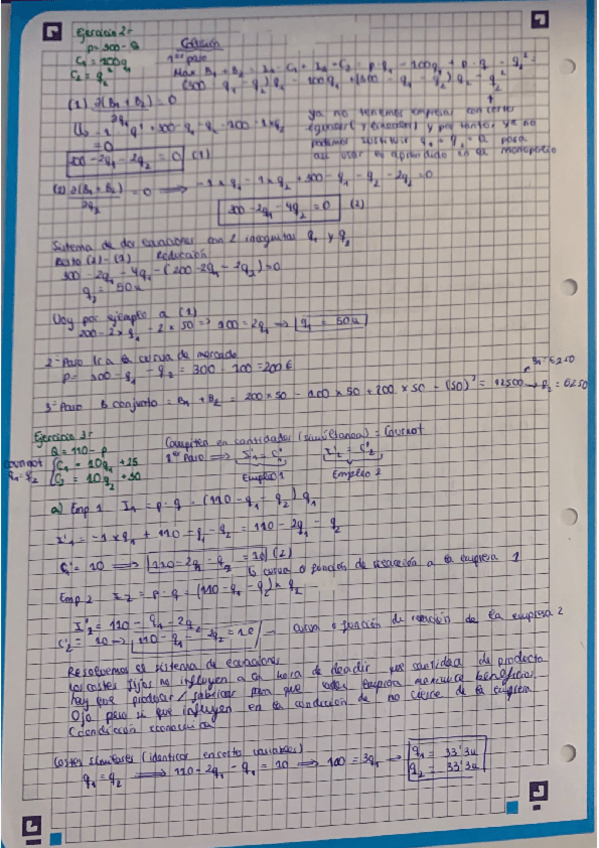 Ejercicio 2:
p = 300 - Q
C₁ = 100q₁
C₂ = q₂²
Colusión
1er paso
Max B₁ + B₂ = I₁ - C₁ + I₂ - C₂ = p · q₁ - 100q₁ + p · q₂ - q₂² =
(300 - q₁ - q₂) q₁ - 100q₁ + (300 - q₁ - q₂) q₂ - q₂²
(1) ∂(B₁ + B₂) = 0
∂q₁
q₁ + 300 - q₁ - q₂ - 100 - 1 × q₂
= 0
200 - 2q₁ - 2q₂ = 0 (1)
ya no tenemos empresas con costes
iguales y por tanto, ya no
podemos sustituir q₁ = q₂ = Q para
así usar lo aprendido en el monopolio
(2) ∂(B₁ + B₂) = 0 ⟹ -1 × q₁ - 1 × q₂ + 300 - q₁ - q₂ - 2q₂ = 0
∂q₂
300 - 2q₁ - 4q₂ = 0 (2)
Sistema de dos ecuaciones con 2 incognitas q₁ y q₂
Resto (2) - (1) Reducción
300 - 2q₁ - 4q₂ - (200 - 2q₁ - 2q₂) = 0
q₂ = 50u
Voy por ejemplo a (1)
200 - 2 × q₁ - 2 × 50 => 100 = 2q₁ => q₁ = 50u
2º Paso Ir a la curva de mercado
p = 300 - q₁ - q₂ = 300 - 100 = 200 €
3º Paso B conjunto = B₁ + B₂ = 200 × 50 - 100 × 50 + 200 × 50 - (50)² = 12500 → B₁ = 6250
B₂ = 6250
Ejercicio 3:
Q = 110 - p
Cournot
q₁ = q₂
C₁ = 10q₁ + 25
C₂ = 10q₂ + 50
Compiten en cantidades (simultánea) = Cournot
1er Paso ⟹ I'₁ = C'₁ I'₂ = C'₂
Empresa 1 Empresa 2
a) Emp 1 I₁ = p · q = (110 - q₁ - q₂) q₁
I'₁ = -1 × q₁ + 110 - q₁ - q₂ = 110 - 2q₁ - q₂
C'₁ = 10 ⟹ 110 - 2q₁ - q₂ = 10
curva o función de reacción a la empresa 1
Emp 2 I₂ = p · q = (110 - q₁ - q₂) × q₂
I'₂ = 110 - q₁ - 2q₂
C'₂ = 10 → 110 - q₁ - 2q₂ = 10 → curva o función de reacción de la empresa 2
Resolvemos el sistema de ecuaciones
los costes fijos no influyen a la hora de decidir que cantidad de producto
hay que producir / fabricar para que cada empresa maximice beneficios.
Ojo pero si que influyen en la condición de no cierre de la empresa
(condición económica)
Costes similares (idénticos en costes variables)
q₁ = q₂ ⟹ 110 - 2q₁ - q₁ = 10 ⟹ 100 = 3q₁ → q₁ = 33'3u
q₂ = 33'3u